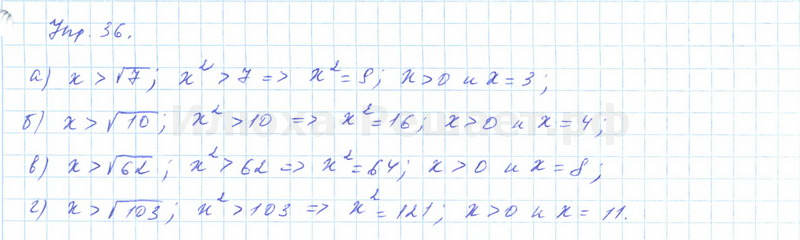 Упр. 36.
а) x > √7; x² > 7 => x² = 9; x > 0 и x = 3;
б) x > √10; x² > 10 => x² = 16; x > 0 и x = 4;
в) x > √62; x² > 62 => x² = 64; x > 0 и x = 8;
г) x > √103; x² > 103 => x² = 121; x > 0 и x = 11.